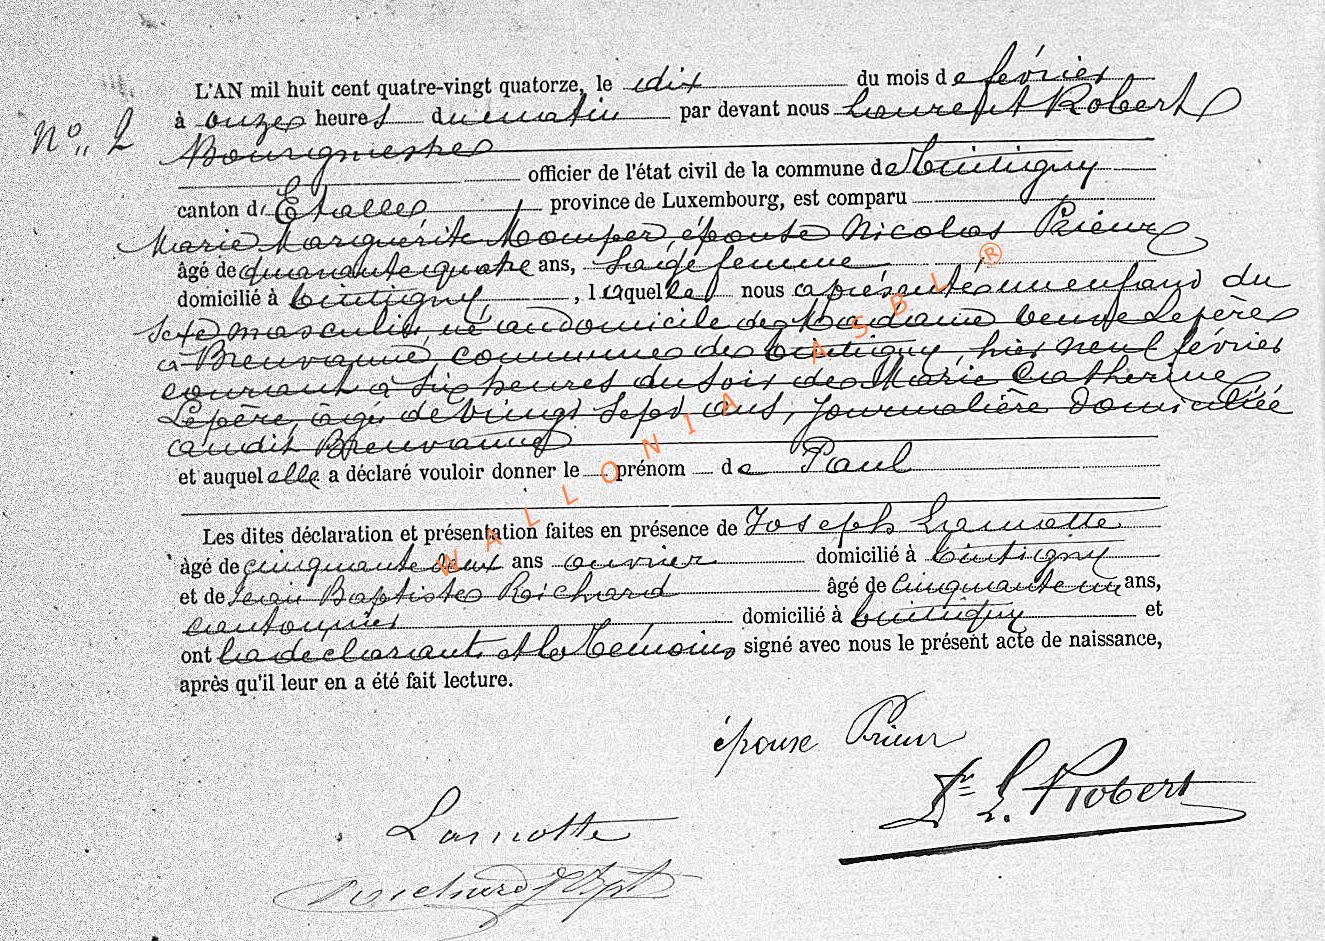 L'AN mil huit cent quatre-vingt quatorze, le dix du mois de février
N° 2
à onze heures du matin par devant nous Laurent Robert
Bourgmestre
officier de l'état civil de la commune de Tintigny
canton d'Etalle province de Luxembourg, est comparu
Marie Marguérite Momper, épouse Nicolas Prieur
âgé de quarante quatre ans, Sage femme
domicilié à Tintigny, , laquelle nous a présenté un enfant du
sexe masculin, né au domicile de Madame veuve Lepère
à Breuvanne commune de Tintigny, hier neuf février
courant à six heures du soir de Marie Catherine
Lepère, âgée de vingt sept ans, Journalière domiciliée
audit Breuvanne
et auquel elle a déclaré vouloir donner le prénom de Paul
Les dites déclaration et présentation faites en présence de Joseph Lamotte
âgé de cinquante deux ans ouvrier domicilié à Tintigny
et de Jean Baptiste Richard âgé de Cinquante un ans,
cantonnier domicilié à Tintigny et
ont la déclarante et les Témoins signé avec nous le présent acte de naissance,
après qu'il leur en a été fait lecture.
épouse Prieur
Dr L. Robert
Lamotte
Richard J Bpt
WALLONIA ASBL ®